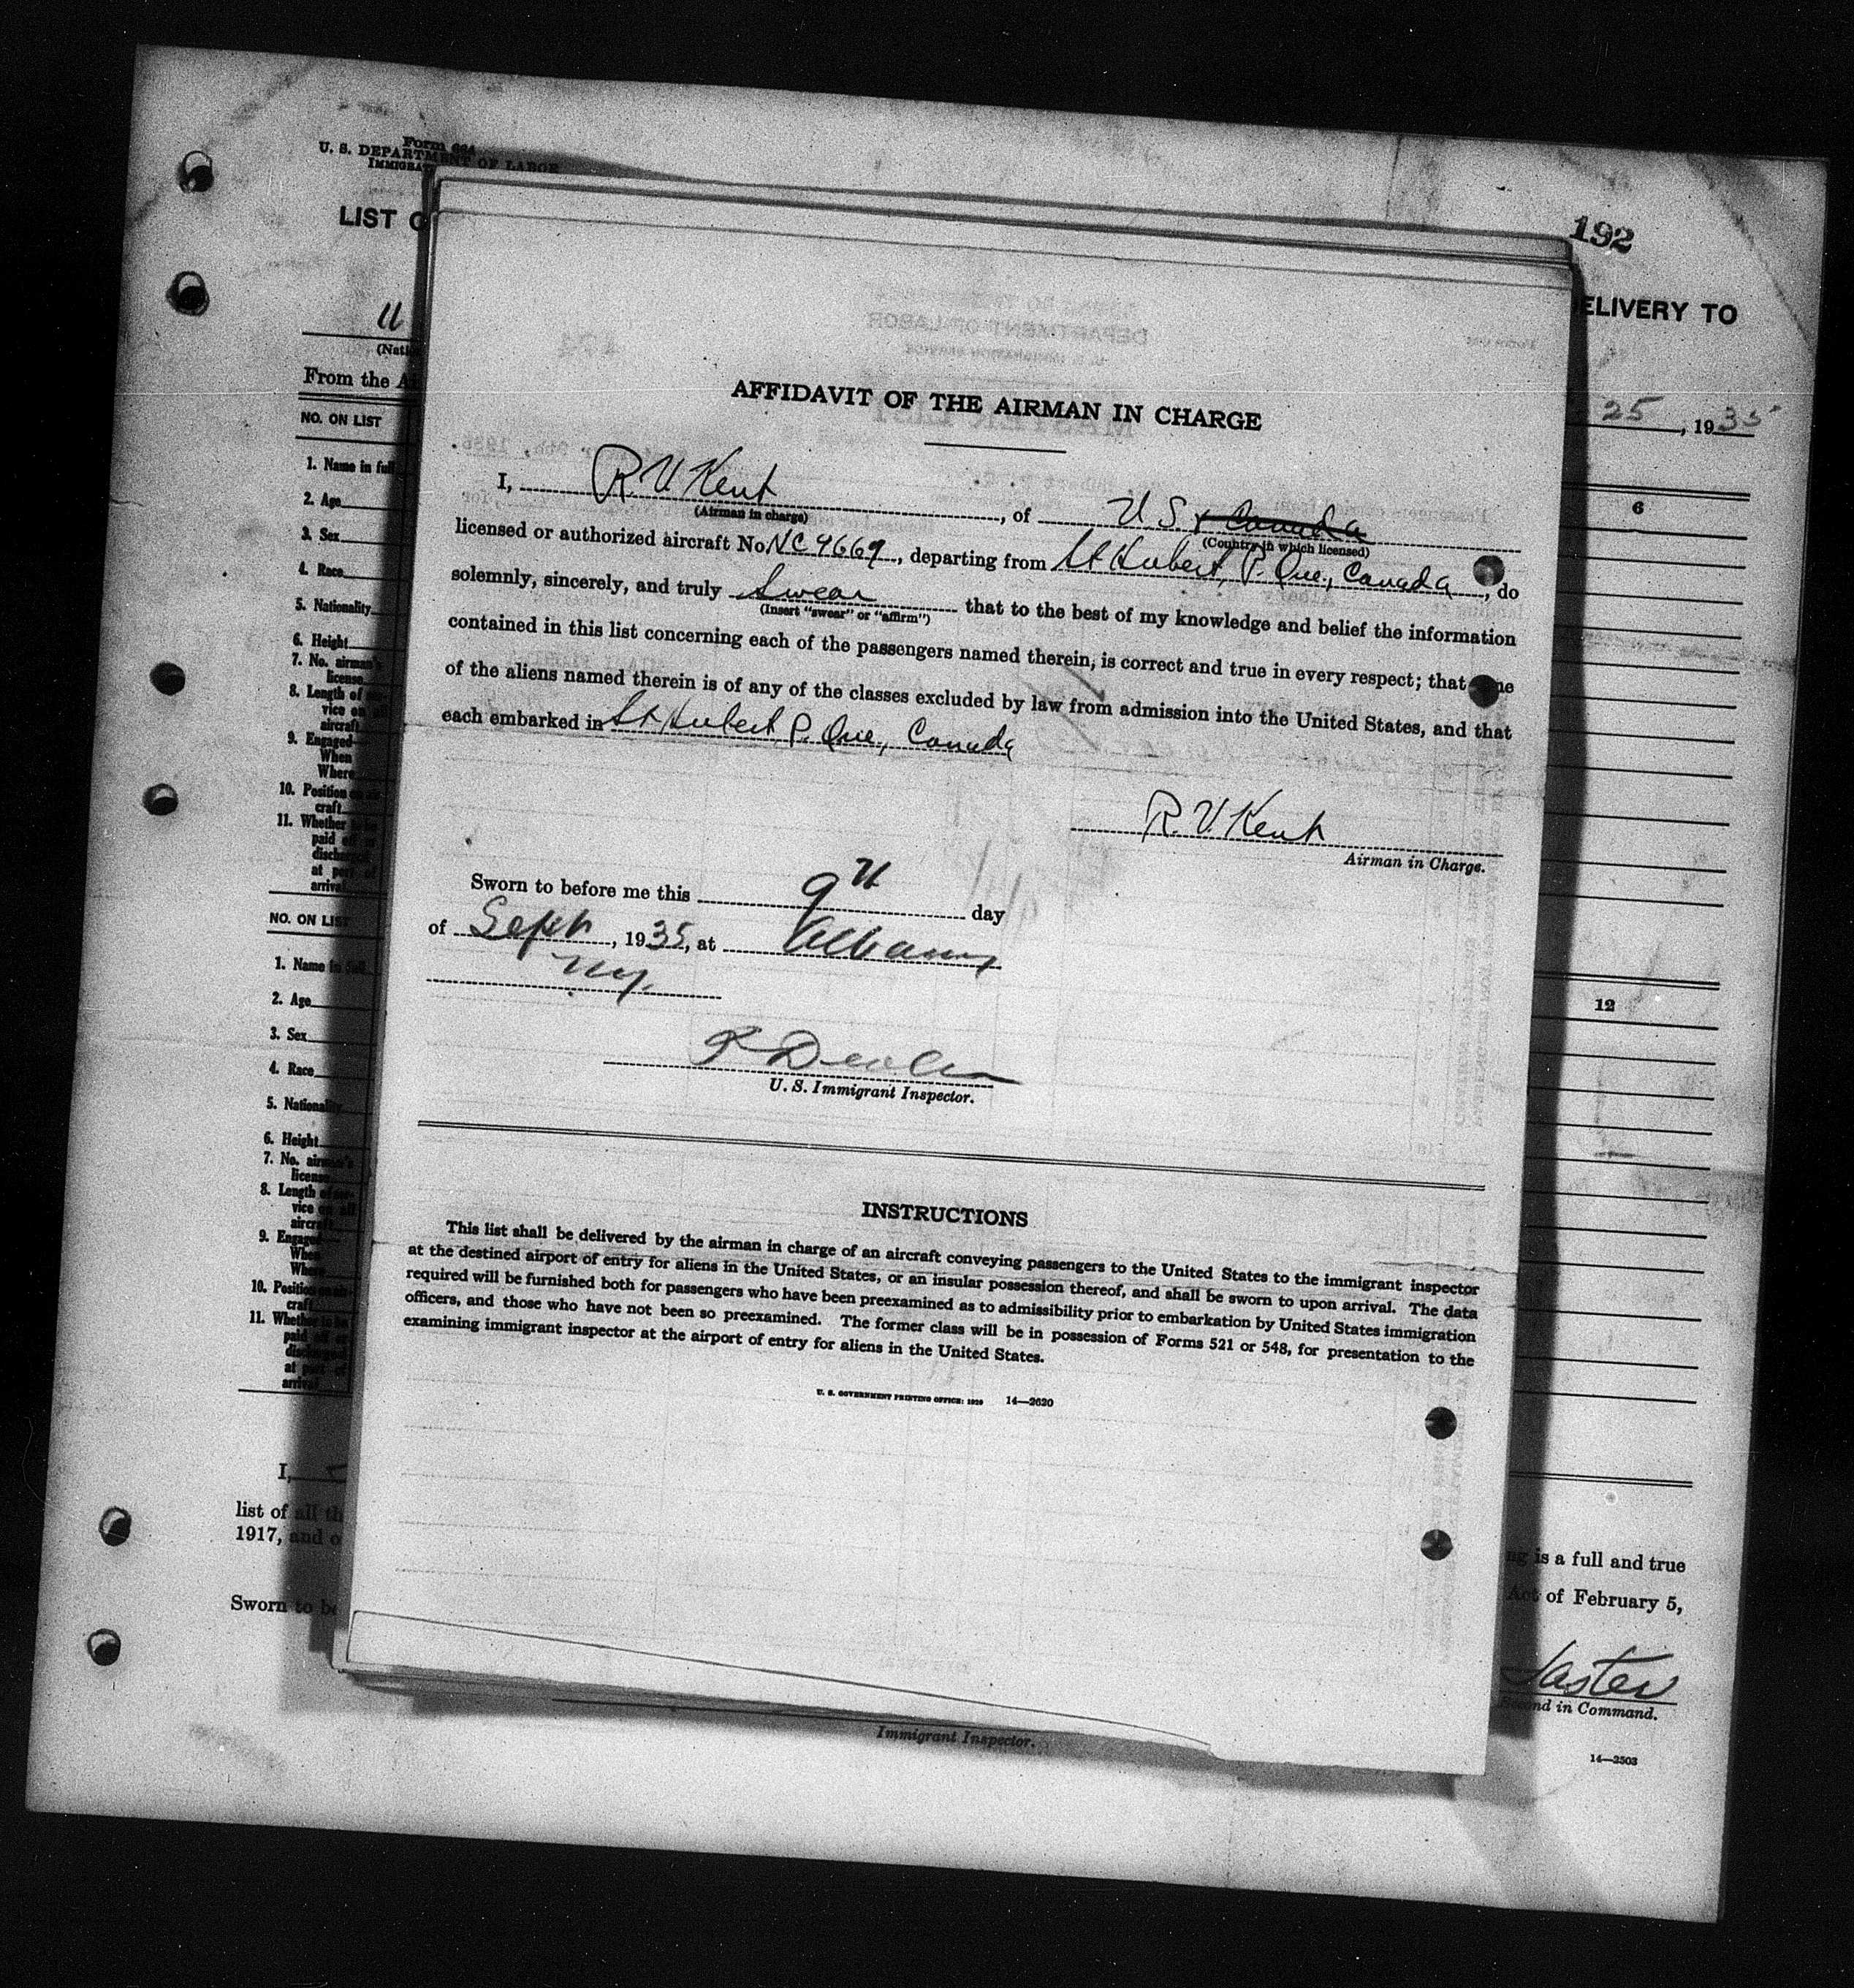 Form 66A
U. S. DEPARTMENT OF LABOR
IMMIGRAT
LIST O
192
ELIVERY TO
U
(Nati
From the A
25, 1935
NO. ON LIST
6
1. Name in full
2. Age
3. Sex
4. Race
5. Nationality
6. Height
7. No. airman's
license
8. Length of ser-
vice on all
aircraft
9. Engaged—
When
Where
10. Position on air-
craft
11. Whether to be
paid off or
discharged
at port of
arrival
NO. ON LIST
12
1. Name in full
2. Age
3. Sex
4. Race
5. Nationality
6. Height
7. No. airman's
license
8. Length of ser-
vice on all
aircraft
9. Engaged—
When
Where
10. Position on air-
craft
11. Whether to be
paid off or
discharged
at port of
arrival
I,
list of all th
1917, and o
Sworn to be
ng is a full and true
Act of February 5,
Second in Command.
14—2503
Immigrant Inspector.
AFFIDAVIT OF THE AIRMAN IN CHARGE
I, R. V. Kent, of U S & Canada
(Airman in charge) (Country in which licensed)
licensed or authorized aircraft No. NC9669, departing from St Hubert, P. Que., Canada, do
solemnly, sincerely, and truly Swear that to the best of my knowledge and belief the information
(Insert "swear" or "affirm")
contained in this list concerning each of the passengers named therein, is correct and true in every respect; that ne
of the aliens named therein is of any of the classes excluded by law from admission into the United States, and that
each embarked in St Hubert P. Que., Canada
R. V. Kent
Airman in Charge.
Sworn to before me this 9th day
of Sept, 1935, at Albany
N.Y.
U. S. Immigrant Inspector.
INSTRUCTIONS
This list shall be delivered by the airman in charge of an aircraft conveying passengers to the United States to the immigrant inspector
at the destined airport of entry for aliens in the United States, or an insular possession thereof, and shall be sworn to upon arrival. The data
required will be furnished both for passengers who have been preexamined as to admissibility prior to embarkation by United States immigration
officers, and those who have not been so preexamined. The former class will be in possession of Forms 521 or 548, for presentation to the
examining immigrant inspector at the airport of entry for aliens in the United States.
U. S. GOVERNMENT PRINTING OFFICE: 1929 14—2620